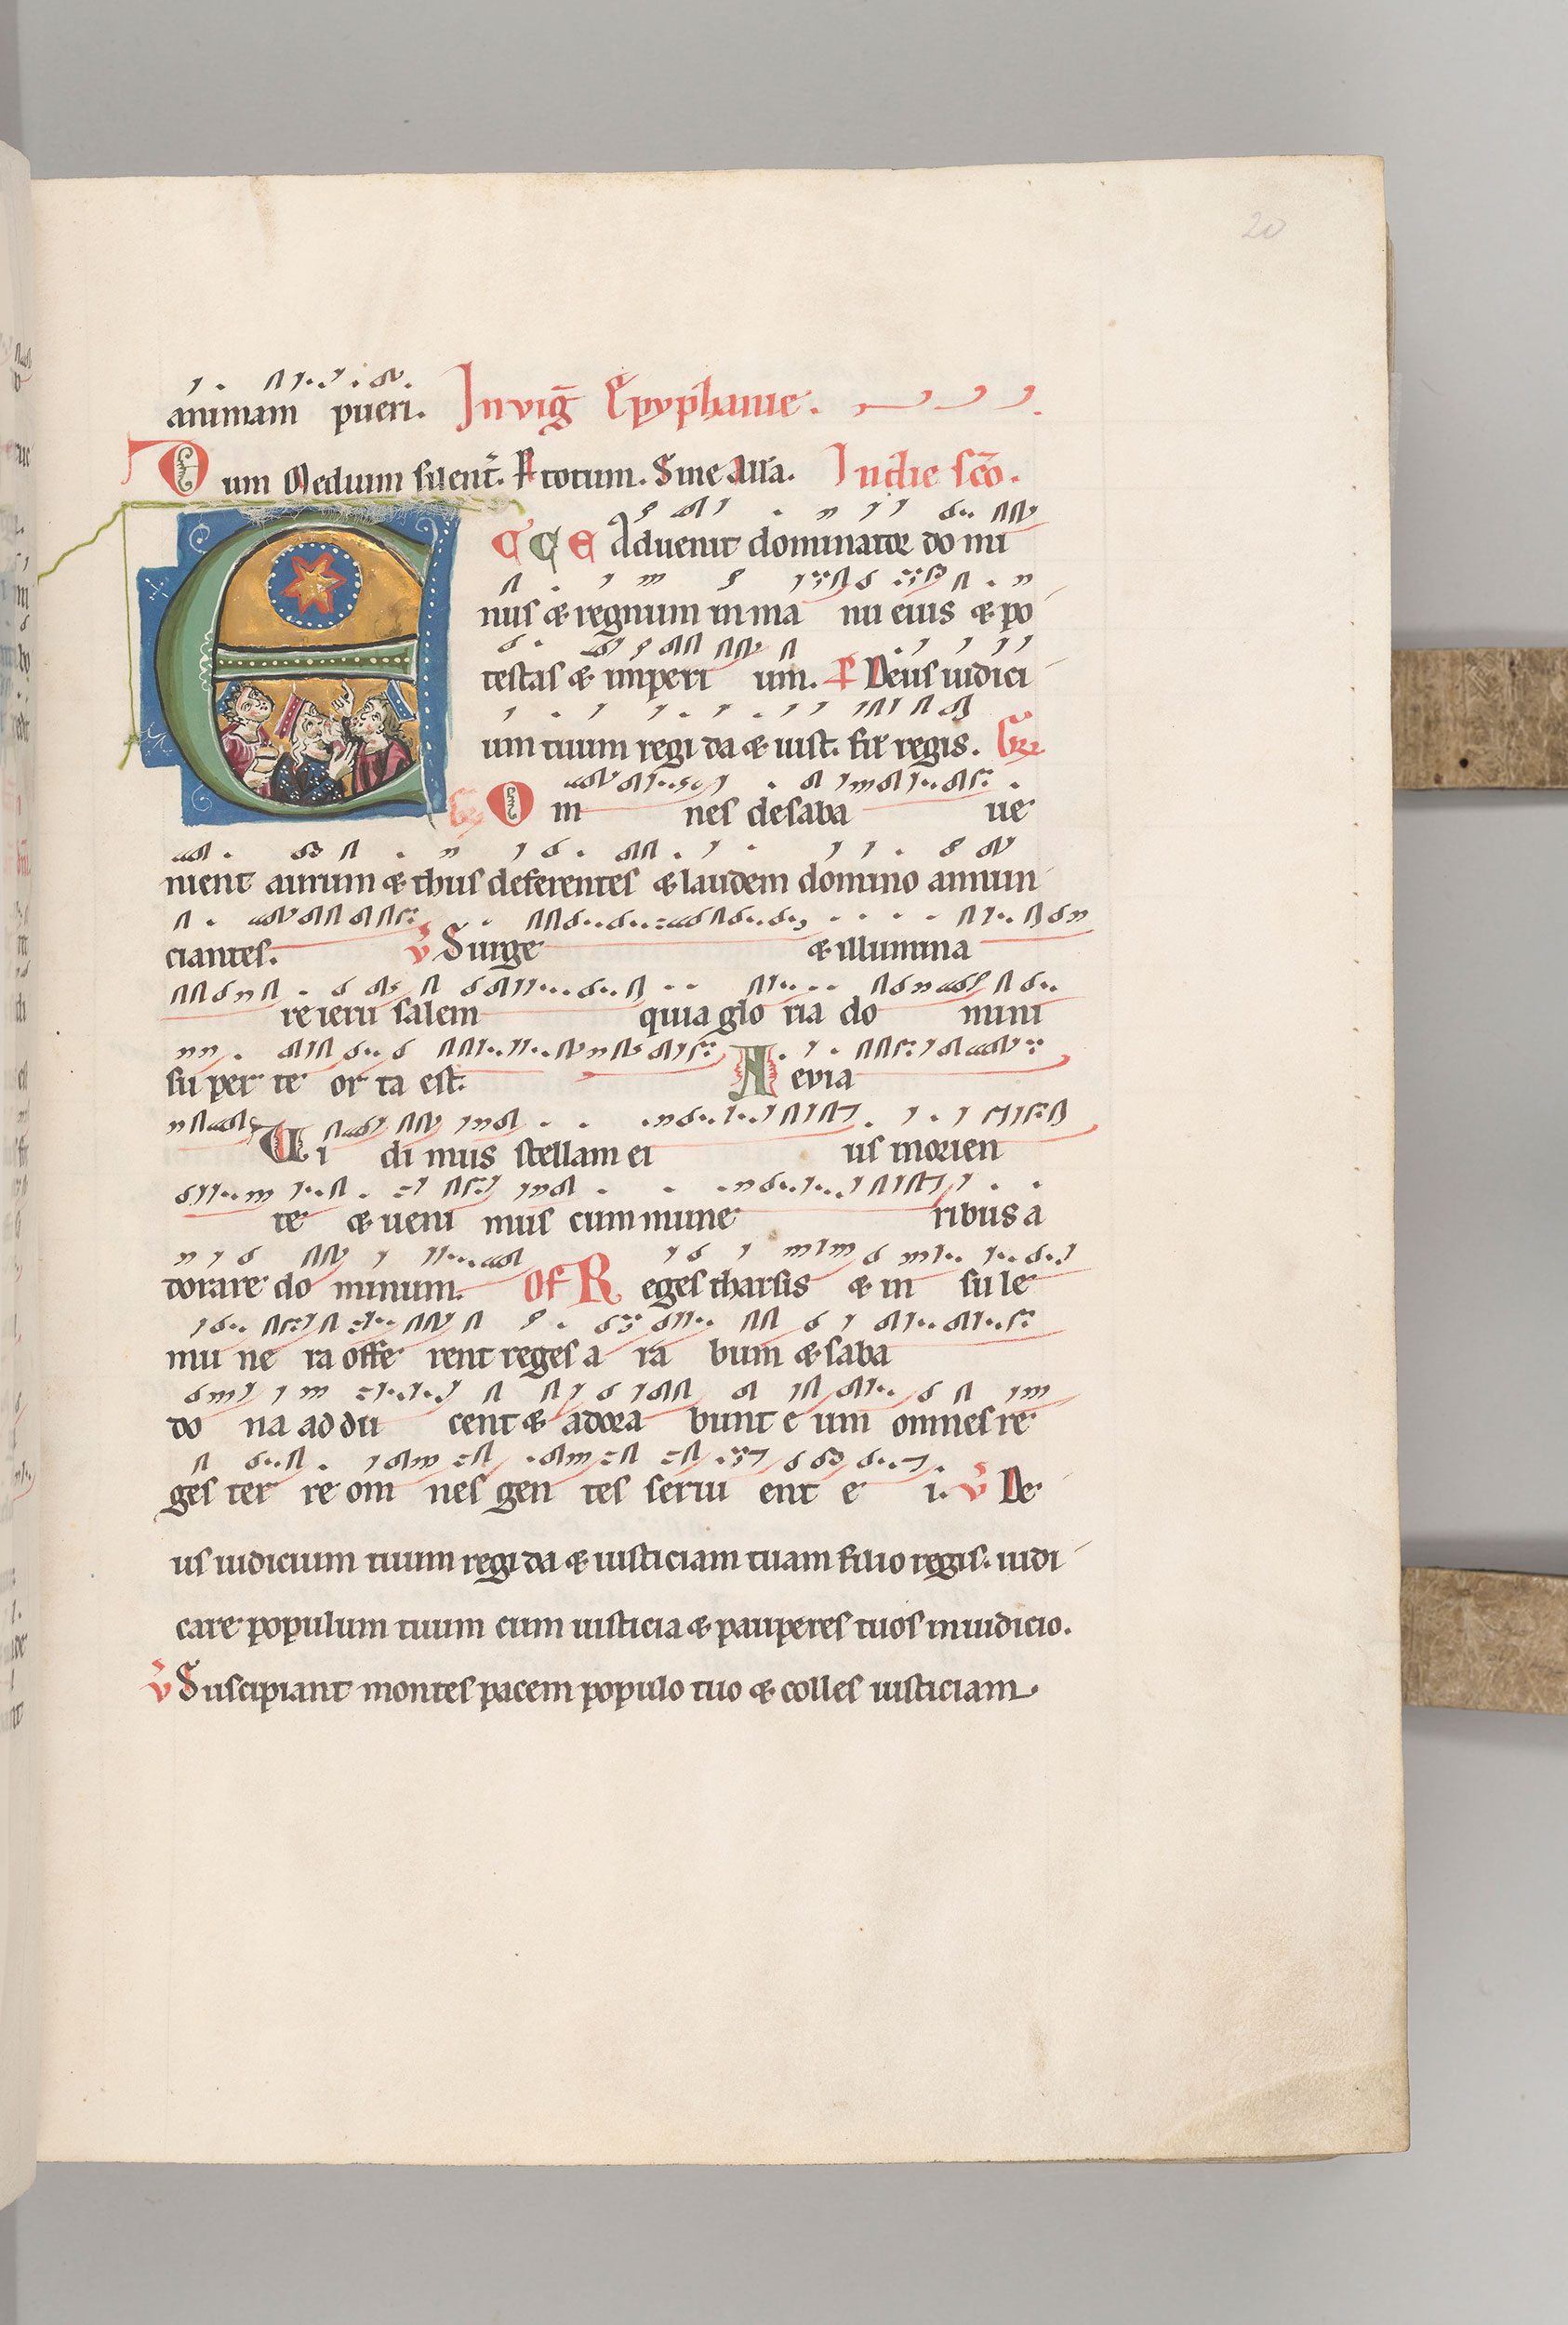 20
animam pueri. In vig̅ Epyphanie.
Dum Medium silent̅. R totum. Sine All̅a. In die sc̅o.
E C C E Aduenit dominator do mi
nus & regnum in ma nu eius & po
testas & imperi um. P Deus iudici
um tuum regi da & iust. fil̅ regis. Gr̅
O m nes de saba ue
nient aurum & thus deferentes & laudem domino annun
ciantes. V Surge & illumina
re ieru salem quia glo ria do mini
su per te or ta est. A evia
Ui di mus stellam ei us in orien
te & ueni mus cum mune ribus a
dorare do minum. Of R eges tharsis & in su le
mu ne ra offe rent reges a ra bum & saba
do na ad du cent & adora bunt e um omnes re
ges ter re om nes gen tes serui ent e i. V De
us iudicium tuum regi da & iusticiam tuam filio regis. iudi
care populum tuum cum iusticia & pauperes tuos in iudicio.
V Suscipiant montes pacem populo tuo & colles iusticiam